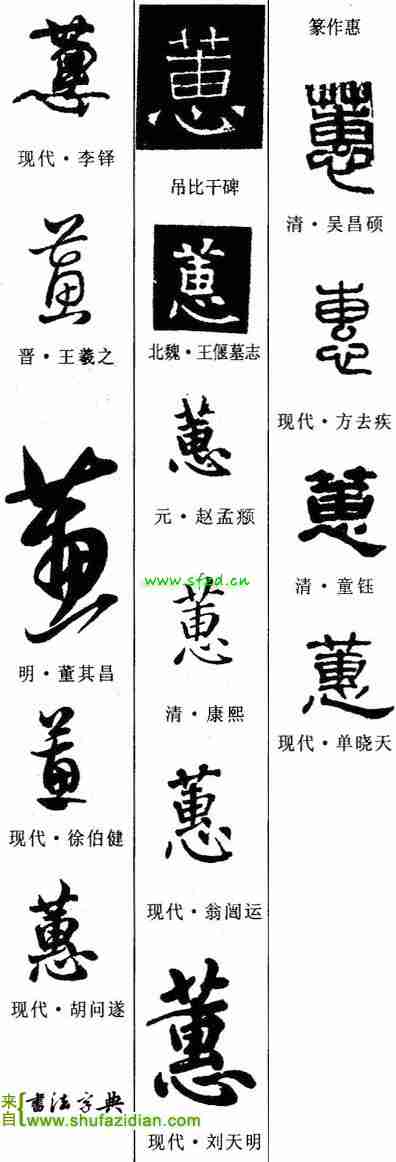 蕙
现代·李铎
蕙
晋·王羲之
蕙
明·董其昌
蕙
现代·徐伯健
蕙
现代·胡问遂
来自
书法字典
www.shufazidian.com
蕙
吊比干碑
蕙
北魏·王偃墓志
蕙
元·赵孟頫
www.sfzd.cn
蕙
清·康熙
蕙
现代·翁闿运
蕙
现代·刘天明
篆作惠
蕙
清·吴昌硕
惠
现代·方去疾
蕙
清·童钰
蕙
现代·单晓天